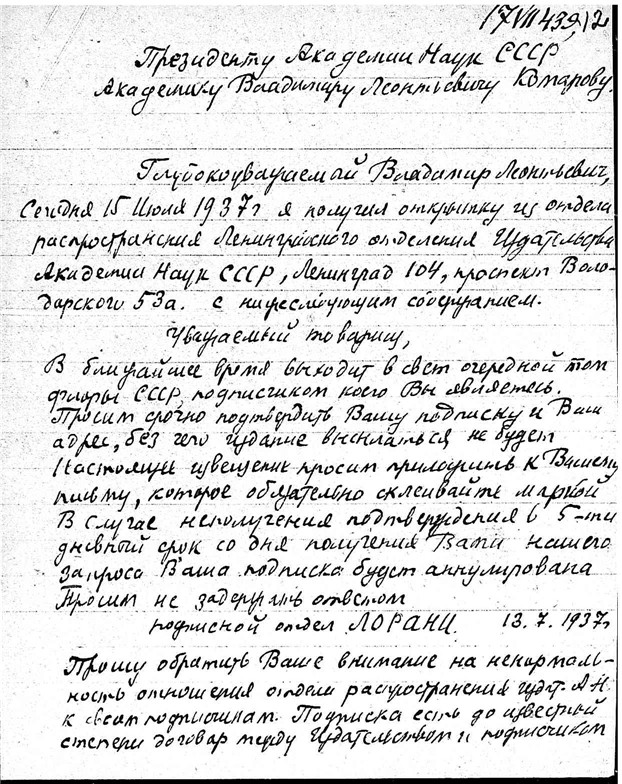 17 VII 439/2
Президенту Академии Наук СССР
Академику Владимиру Леонтьевичу Комарову.
Глубокоуважаемый Владимир Леонтьевич,
Сегодня 15 Июля 1937 г я получил открытку из отдела
распространения Ленинградского отделения Издательства
Академии Наук СССР, Ленинград 104, проспект Воло-
дарского 53а. с нижеследующим содержанием.
Уважаемый товарищ,
В ближайшее время выходит в свет очередной том
флоры СССР, подписчиком коего Вы являетесь.
Просим срочно подтвердить Вашу подписку и Ваш
адрес, без чего издание высылаться не будет
Настоящее извещение просим приложить к Вашему
письму, которое обязательно склеивайте маркой
В случае неполучения подтверждения в 5-ти
дневный срок со дня получения Вами нашего
запроса Ваша подписка будет аннулирована
Просим не задержать ответом
подписной отдел ЛОРАНИ. 13.7.1937 г
Прошу обратить Ваше внимание на ненормаль-
ность отношения отдела распространения издат. АН
к своим подписчикам. Подписка есть до известной
степени договор между Издательством и подписчиком